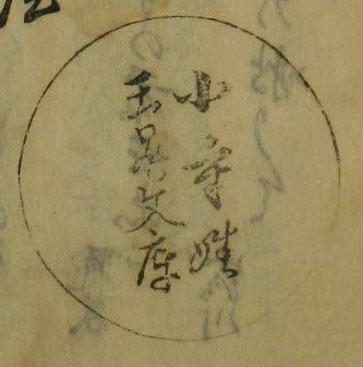 小寺姓
玉晁文庫